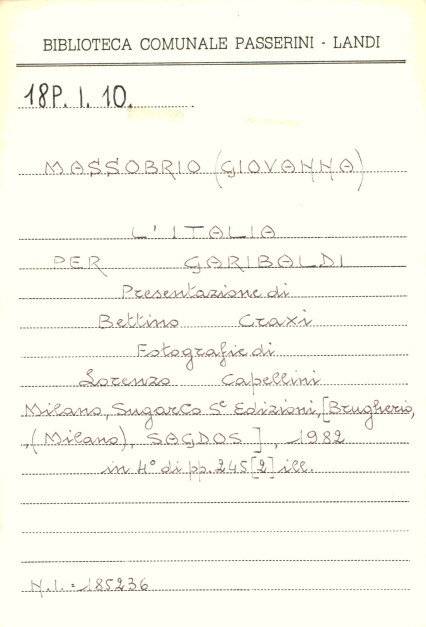 BIBLIOTECA COMUNALE PASSERINI - LANDI
18P. I. 10.
MASSOBRIO (GIOVANNA)
L'ITALIA
PER GARIBALDI
Presentazione di
Bettino Craxi
Fotografie di
Lorenzo Capellini
Milano, SugarCo Edizioni, [Brugherio,
(Milano), SAGDOS], 1982
in 4° di pp. 245 [2] ill.
N.I. = 185236